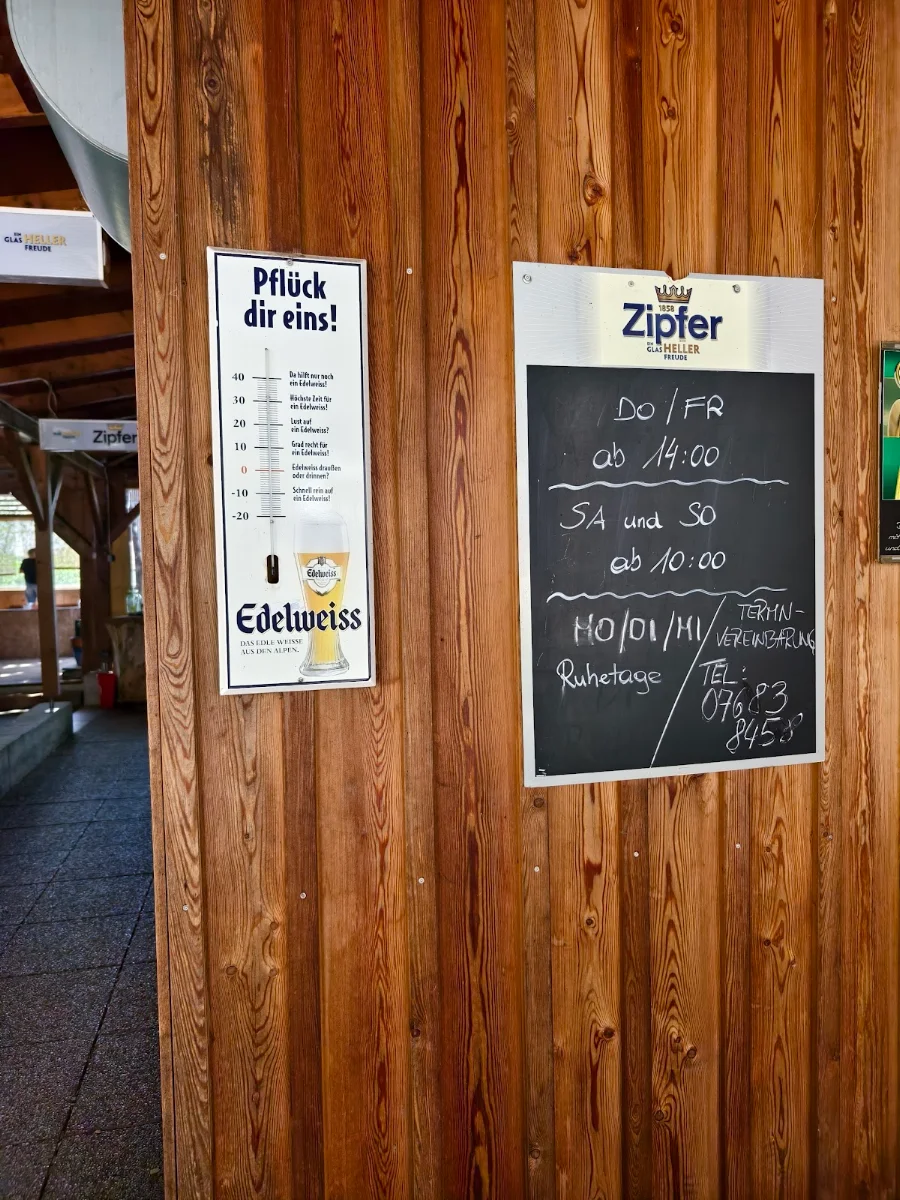 EIN
GLAS HELLER
FREUDE
Zipfer
Pflück
dir eins!
40 Da hilft nur noch
ein Edelweiss!
30 Höchste Zeit für
ein Edelweiss!
20 Lust auf
ein Edelweiss?
10 Grad recht für
ein Edelweiss!
0 Edelweiss draußen
oder drinnen?
-10 Schnell rein auf
ein Edelweiss!
-20
Edelweiss
Edelweiss
DAS EDLE WEISSE
AUS DEN ALPEN.
1858
Zipfer
EIN
GLAS HELLER
FREUDE
DO / FR
ab 14:00
SA und SO
ab 10:00
MO/DI/MI
Ruhetage
TERMIN-
VEREINBARUNG
TEL:
07683
8458